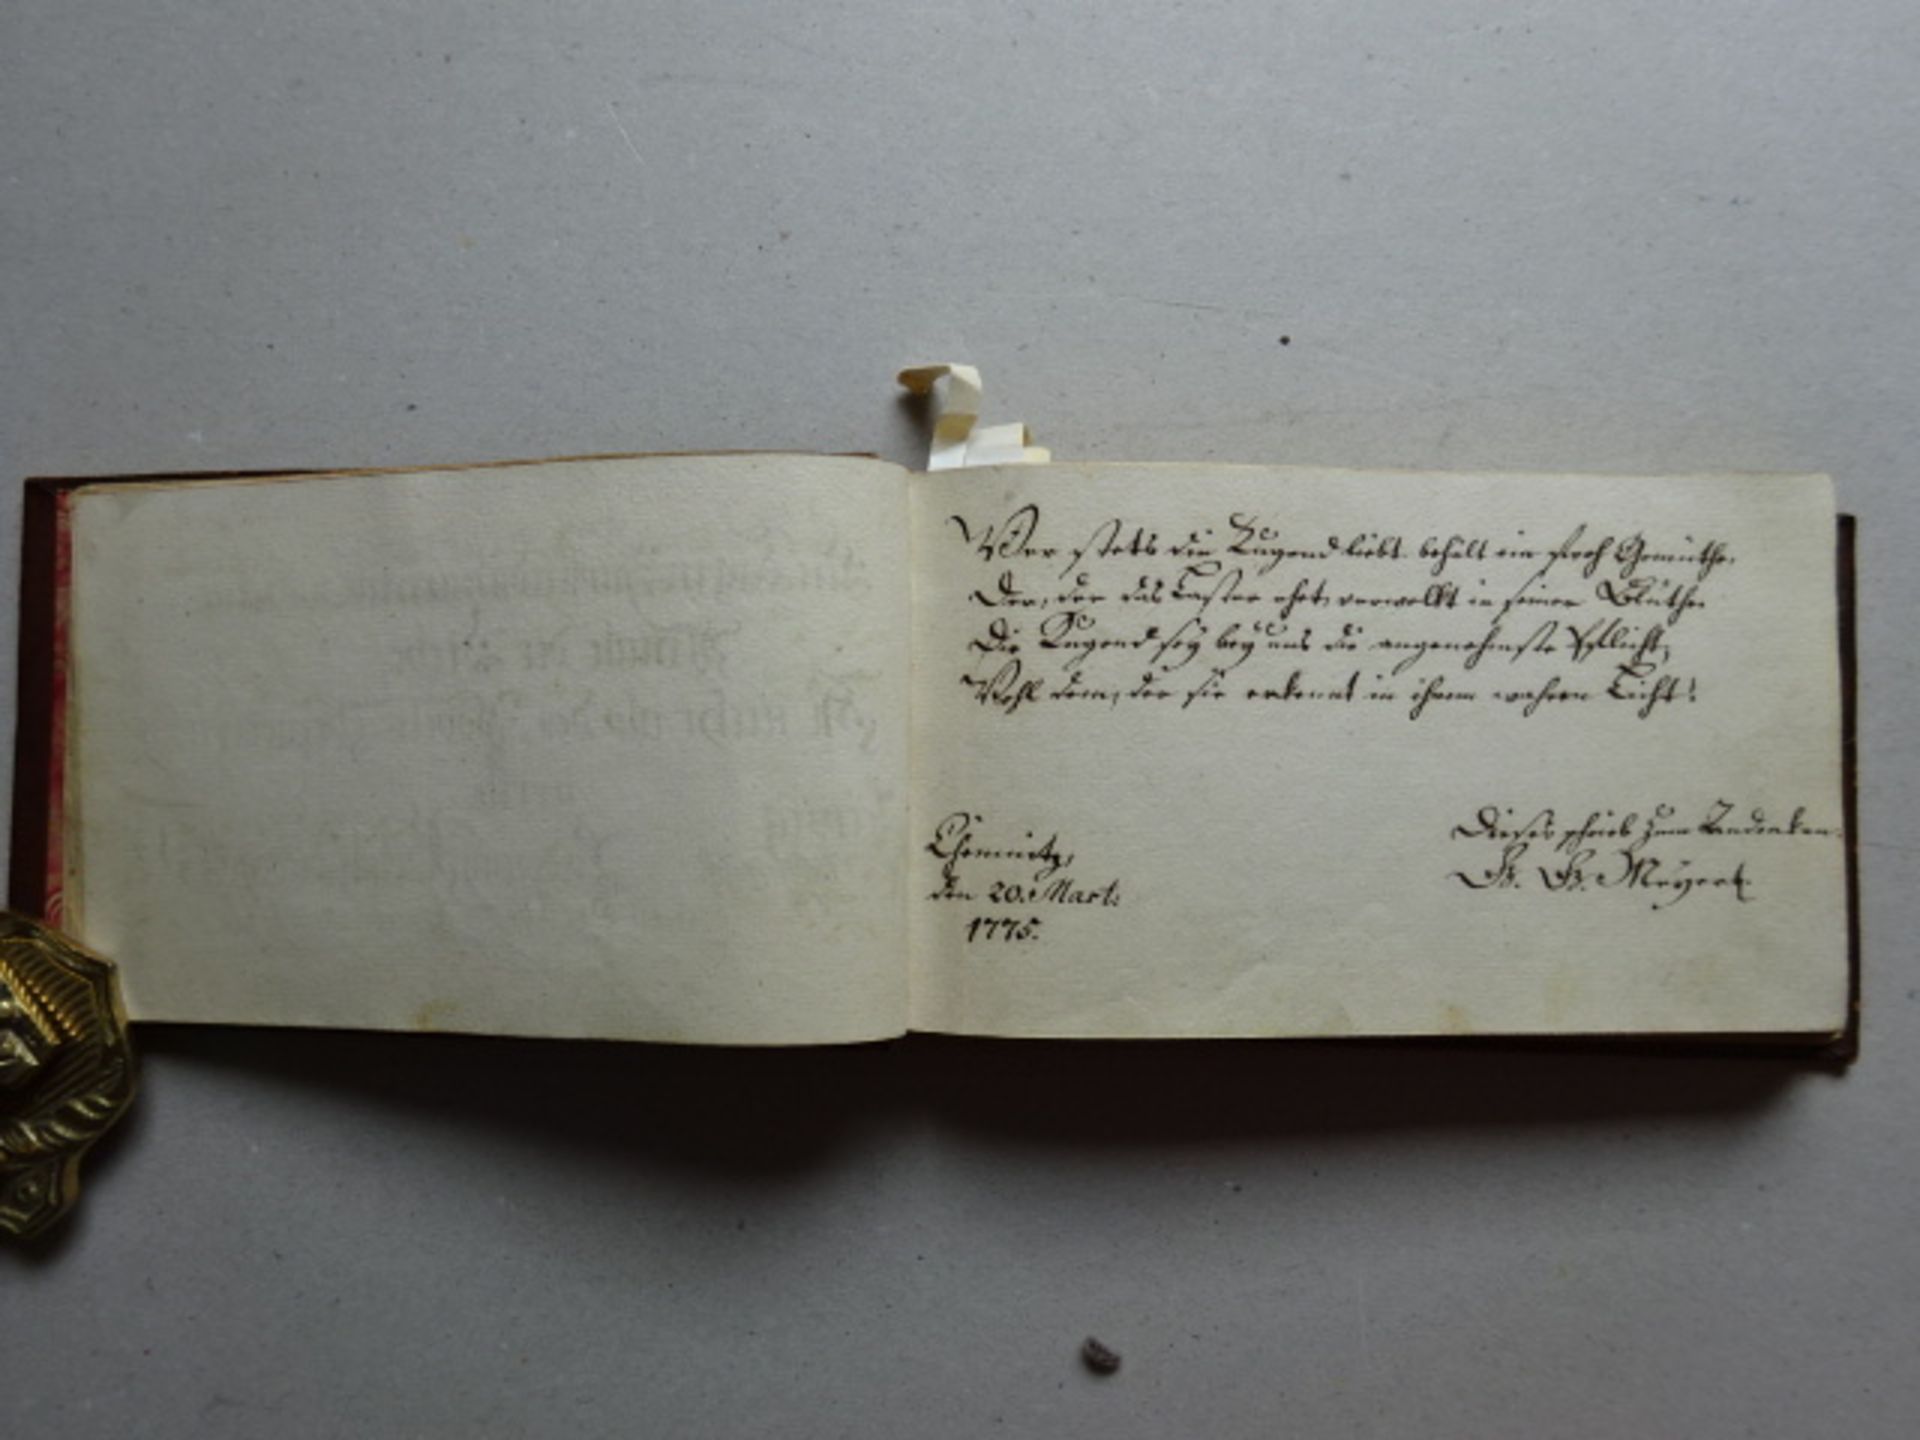 Wer stets die Tugend liebt, behält ein froh Gemüthe,
Der, der das Laster ehrt, verwelkt in seiner Blüthe.
Die Tugend sey bey uns die angenehmste Pflicht,
Wohl dem, der sie erkennt in ihrem wahren Licht!
Chemnitz,
den 20. Mart:
1775.
Dieses schrieb zum Andenken
Meyert.